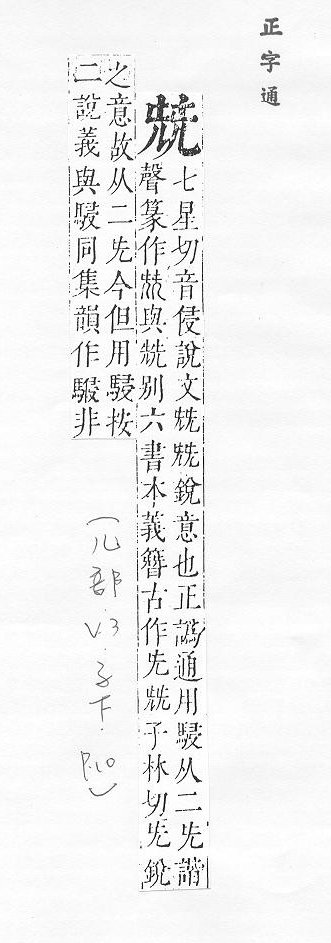 正字通
兓
七星切音侵說文兓兓銳意也正譌通用駸从二兂諧
聲篆作兓與兟别六書本義簪古作兂兓子林切兂銳
之意故从二兂今但用駸按
二說義與駸同集韻作非
(儿部.V3.子下.P.10)